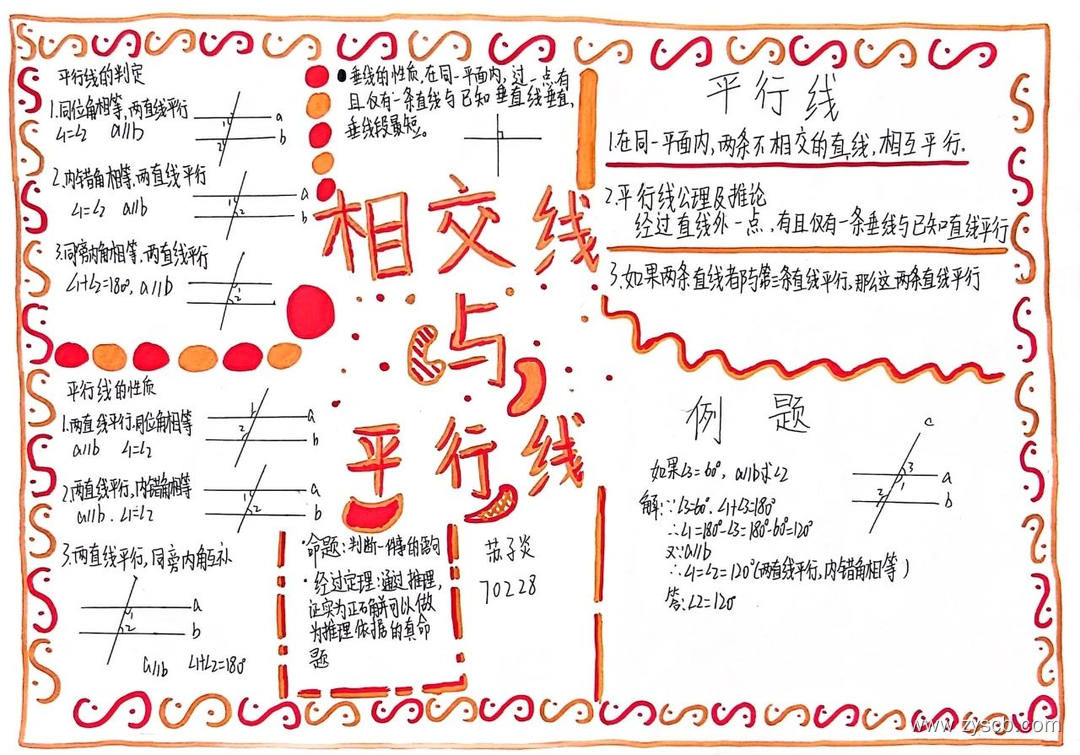 平行线的判定
1.同位角相等,两直线平行
∠1=∠2 a∥b
1
2
a
b
2.内错角相等,两直线平行
∠1=∠2 a∥b
1
2
a
b
3.同旁内角相等,两直线平行
∠1+∠2=180°, a∥b
1
2
平行线的性质
1.两直线平行,同位角相等
a∥b ∠1=∠2
1
2
a
b
2.两直线平行,内错角相等
a∥b. ∠1=∠2
1
2
a
b
3.两直线平行,同旁内角互补
1
2
a
b
a∥b ∠1+∠2=180°
垂线的性质,在同一平面内,过一点有
且仅有一条直线与已知垂直线垂直,
垂线段最短。
相交线
与
平行线
·命题:判断一件事的语句
·经过定理:通过推理,
证实为正石角并可以做
为推理依据的真命
题
苏子炎
70228
平行线
1.在同一平面内,两条不相交的直线,相互平行.
2.平行线公理及推论
经过直线外一点,有且仅有一条垂线与已知直线平行
3.如果两条直线都与第三条直线平行,那么这两条直线平行
例 题
如果∠3=60°, a∥b求∠2
解:∵∠3=60°. ∠1+∠3=180°
∴∠1=180°-∠3=180°-60°=120°
又∵a∥b
∴∠1=∠2=120°(两直线平行,内错角相等)
答:∠2=120°
c
3
1
a
2
b
www.zyscb.com